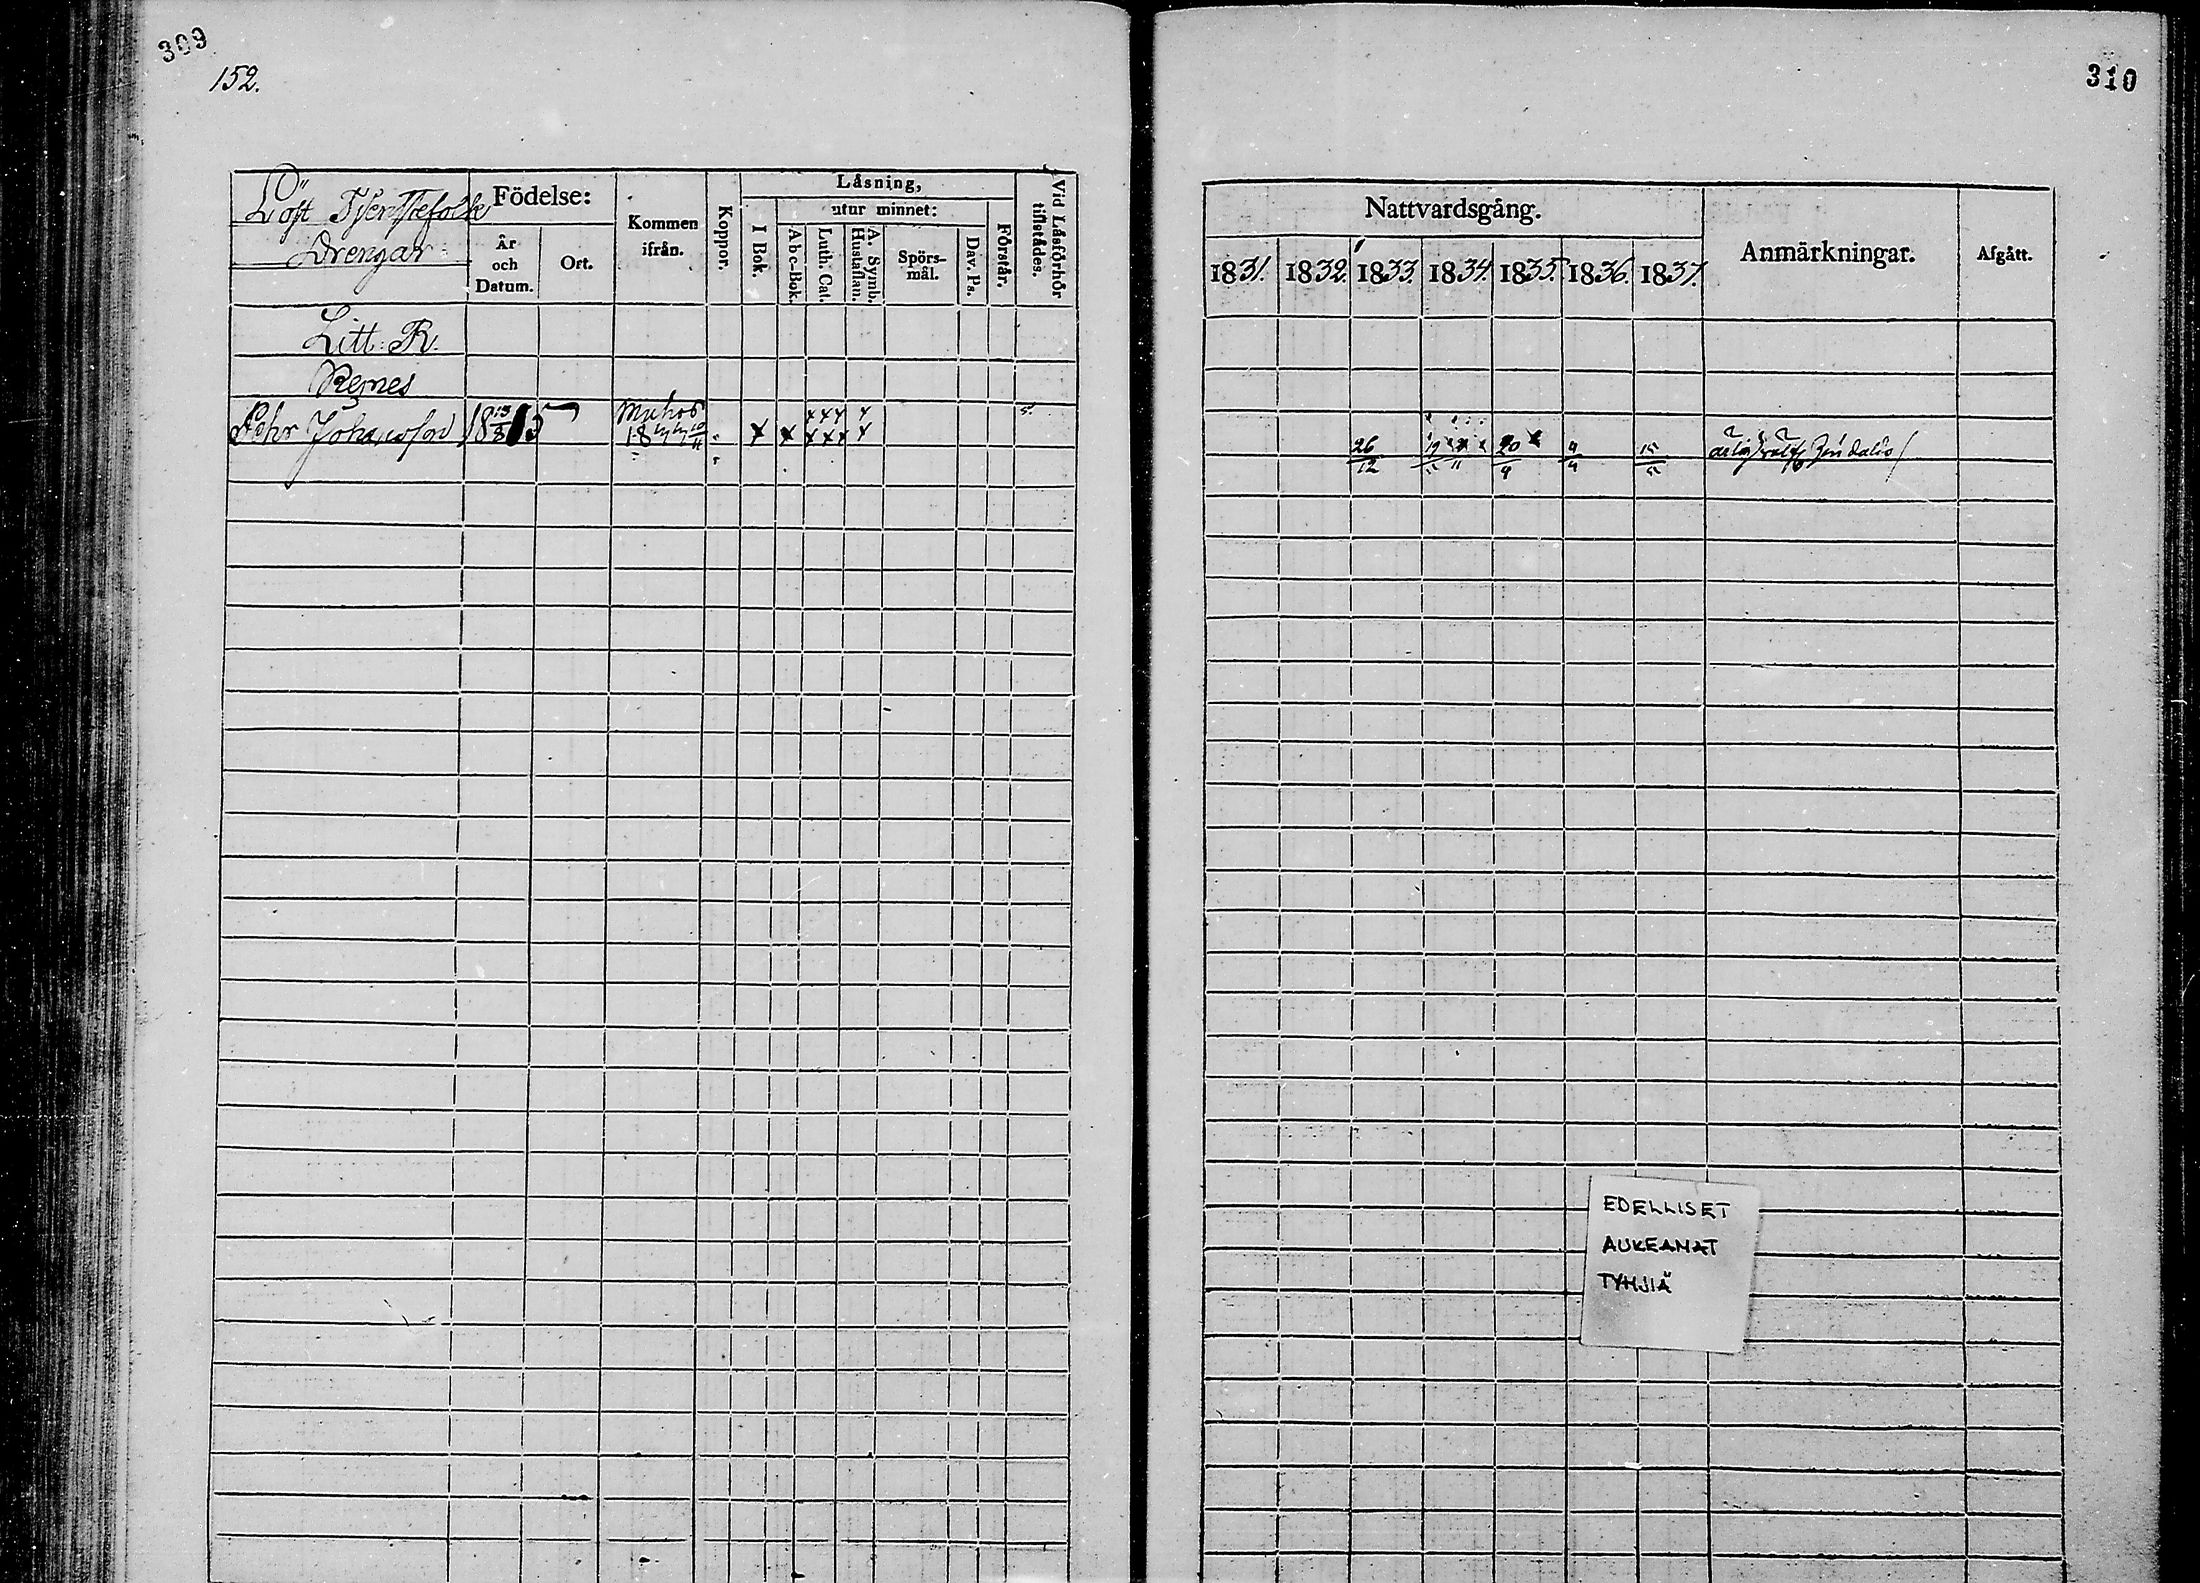 309
152.
Löst Tjenstefolk
Drengar
Födelse:
År
och
Datum.
Ort.
Kommen
ifrån.
Koppor.
Läsning,
I Bok.
utur minnet:
Abc-Bok.
Luth. Cat.
A. Symb.
Hustaflan.
Spörs-
mål.
Dav. Ps.
Förstår.
Vid Läsförhör
tillstädes.
Litt. R.
Remes
Pehr Johansson 18 13/8 15
Muhos
310
Nattvardsgång.
1831. 1832. 1833. 1834. 1835. 1836. 1837.
Anmärkningar.
Afgått.
26/12 20/9 4/4 15/5
EDELLISET
AUKEAMAT
TYHJIÄ